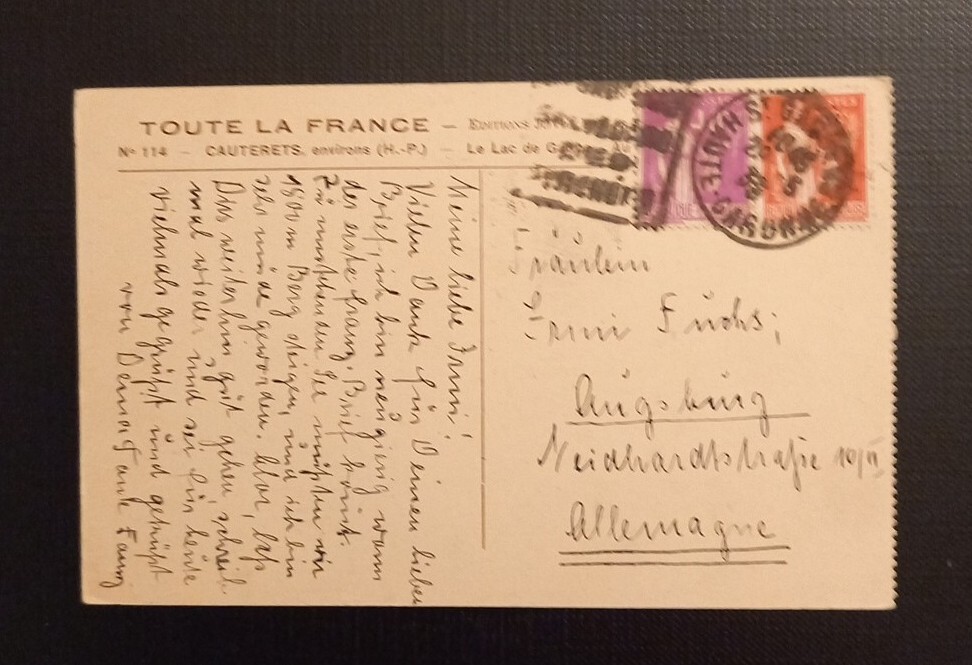 TOUTE LA FRANCE – Editions
Nº 114 – CAUTERETS, environs (H.-P.) – Le Lac de
Meine liebe Irmi!
Vielen Dank für Deinen lieben
Brief, ich bin neugierig wann
der erste franz. Brief kommt.
Zu unserem See mußten wir
1500 m Berg steigen, und ich bin
sehr müde geworden. Aber, laß
Dirs weiterhin gut gehen, schreib
mal wieder und sei für heute
vielmals gegrüßt und geküßt
von Deiner Tante Fanny
Sᵗ
HAUTE-GARONNE
Fräulein
Irmi Fuchs;
Augsburg
Neidhardtstraße 10/II
Allemagne